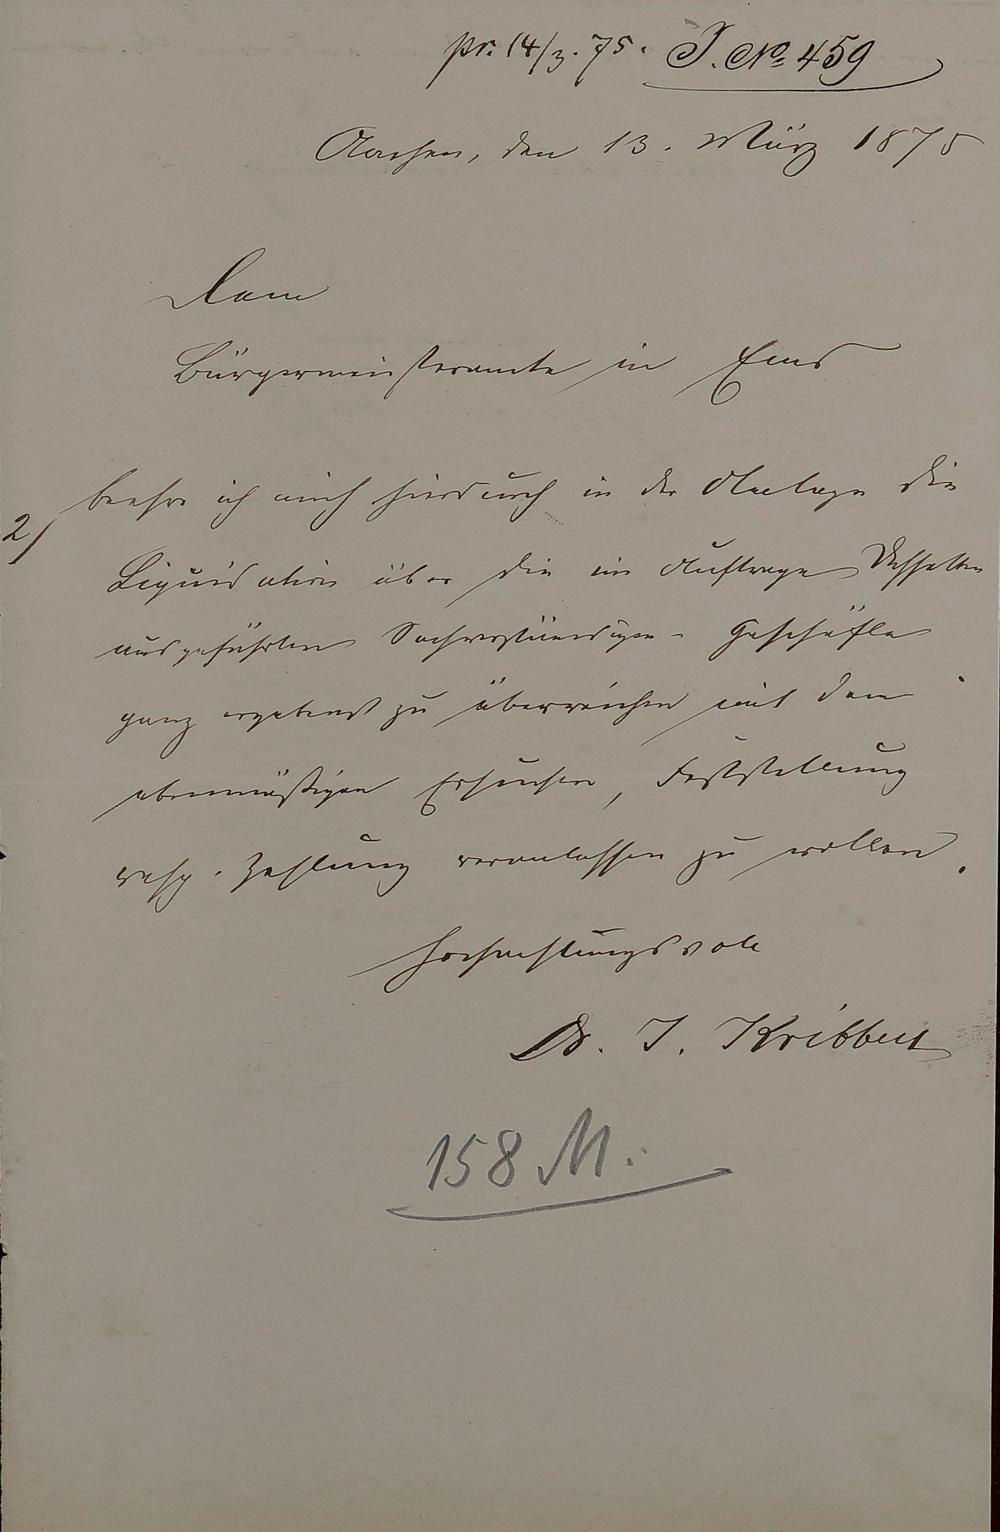 pr. 14/3. 75. J. No. 459
Aachen, den 13. März 1875
Dem
Bürgermeisteramte in Ems
beehre ich mich hierdurch in der Anlage die
2/
Liquidation über die im Auftrage Desselben
ausgeführten Sachverständigen-Geschäfte
ganz ergebenst zu überreichen mit dem
ebenmäßigen Ersuchen, Feststellung
resp. Zahlung veranlassen zu wollen.
Hochachtungsvoll
Dr. J. Kribben
158 M.